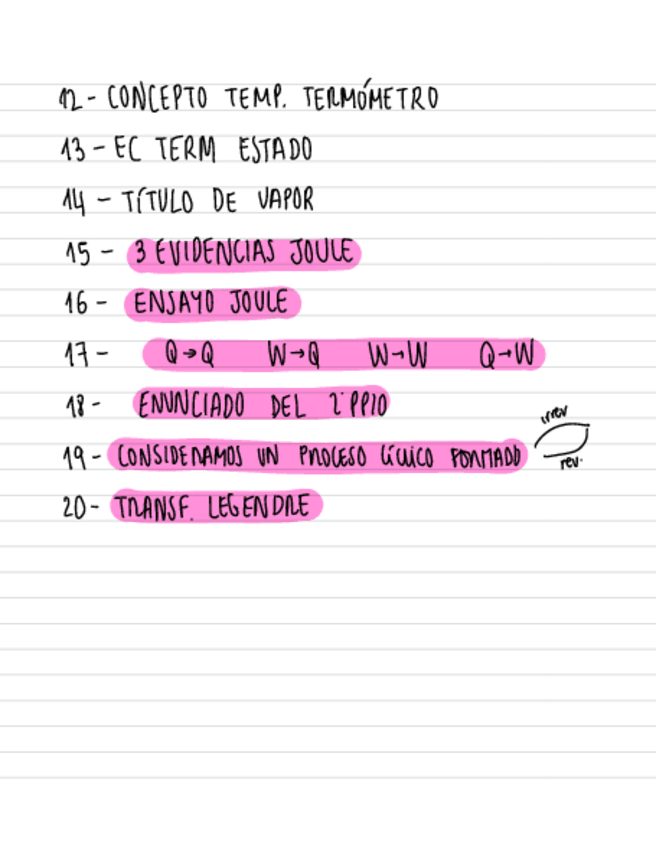 12- CONCEPTO TEMP. TERMÓMETRO
13- EC TERM ESTADO
14- TÍTULO DE VAPOR
15- 3 EVIDENCIAS JOULE
16- ENSAYO JOULE
17- Q→Q W→Q W→W Q→W
18- ENUNCIADO DEL 2º PPIO
irrev
19- CONSIDERAMOS UN PROCESO CÍCLICO FORMADO
rev.
20- TRANSF. LEGENDRE